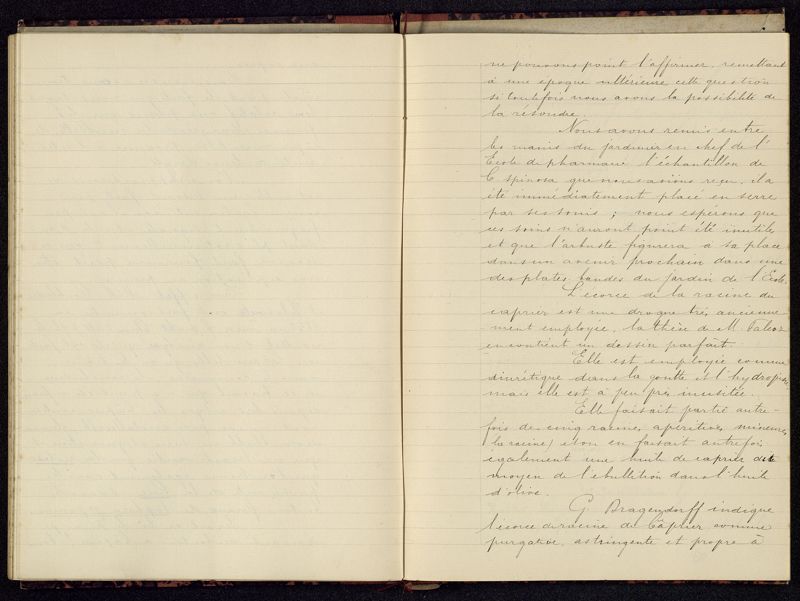 ne pouvons point l'affirmer, remettant
à une époque ultérieure cette question
si toutefois nous avons la possibilité de
la résoudre.
Nous avons remis entre
les mains du jardinier en chef de l'
École de pharmacie l'échantillon de
C. spinosa que nous avions reçu, il a
été immédiatement placé en serre
par ses soins ; nous espérons que
ces soins n'auront point été inutiles
et que l'arbuste figurera à sa place
dans un avenir prochain dans une
des plates-bandes du jardin de l'École.
L'écorce de la racine du
caprier est une drogue très ancienne-
ment employée, la thèse de M. Falcoz
en contient un dessin parfait.
Elle est employée comme
diurétique dans la goutte et l'hydropisie,
mais elle est à peu près inusitée.
Elle faisait partie autre-
fois des cinq racines apéritives mineures
(la racine) et on en faisait autrefois
également une huile de caprier au
moyen de l'ébullition dans l'huile
d'olive.
G. Dragendorff indique
l'écorce de racine de Câprier comme
purgative, astringente et propre à